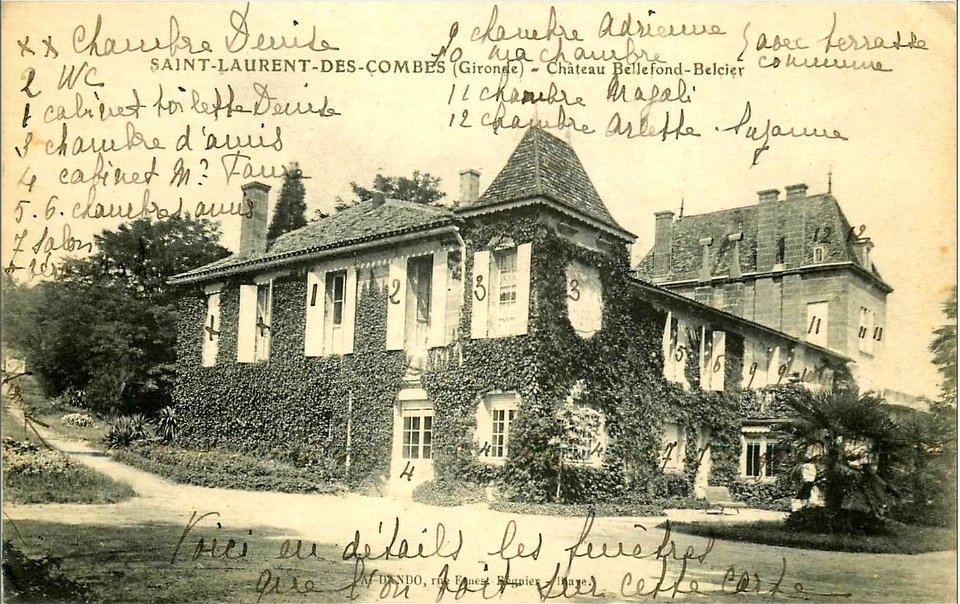 x x chambre Denise
2 WC
1 cabinet toilette Denise
3 chambre d'amis
4 cabinet Mr Faure
5.6. chambres amis
7 salon
9 chambre Adrienne
10 ma chambre
5 avec terrasse
commune
11 chambre Magali
12 chambre Arlette. Suzanne
SAINT-LAURENT-DES-COMBES (Gironde) - Château Bellefond-Belcier
x x 1 2 3 3
5 6 9 9 1
12 12
11 11 11
4 4 4 7 7
Voici en détails les fenêtres
que l'on voit sur cette carte
DANDO, rue Ernest Régnier -